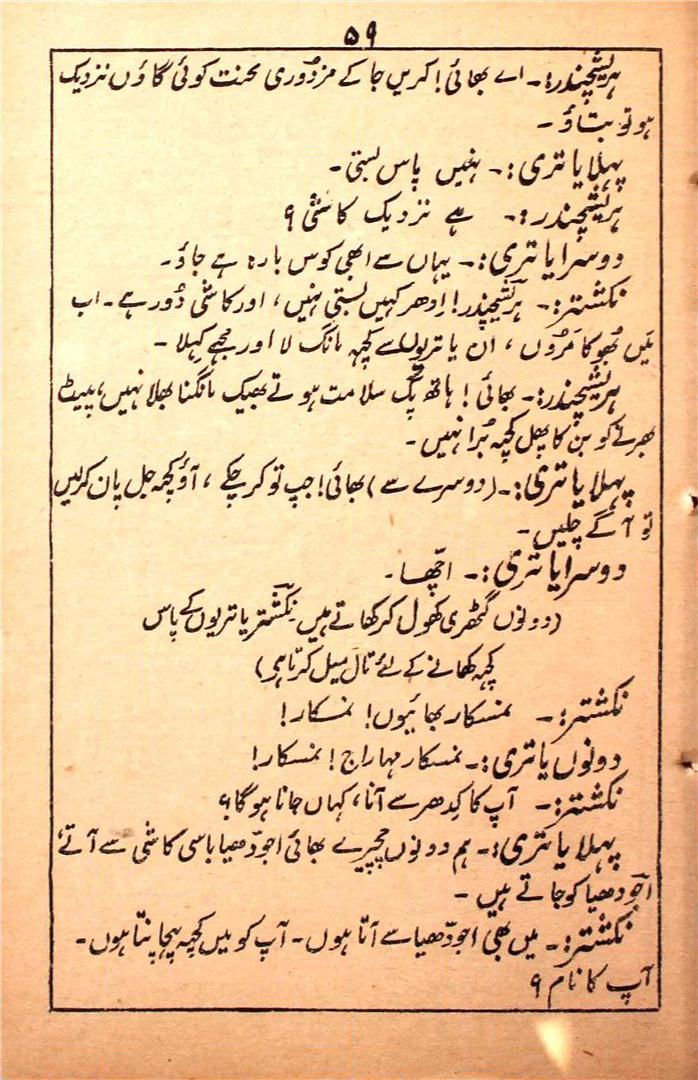 ۵۹
ہریشچندر:۔ اے بھائی! کریں جا کے مزدوری محنت کوئی گاؤں نزدیک
ہو تو بتاؤ۔
پہلا یاتری:۔ نہیں پاس بستی۔
ہریشچندر:۔ ہے نزدیک کاشی؟
دوسرا یاتری:۔ یہاں سے ابھی کوس بارہ ہے جاؤ۔
نکشتر:۔ ہریشچندر! اِدھر کہیں بستی نہیں، اور کاشی دُور ہے۔ اب
میں بھُوکا مروں، ان یاتریوں سے کچھ مانگ لا اور مجھے کھلا۔
ہریشچندر:۔ بھائی! ہاتھ پگ سلامت ہوتے بھیک مانگنا بھلا نہیں، پیٹ
بھرنے کو بن کا پھل کچھ بُرا نہیں۔
پہلا یاتری:۔ (دوسرے سے) بھائی! جپ تو کر چکے، آؤ کچھ جل پان کرلیں
تو آگے چلیں۔
دوسرا یاتری:۔ اچّھا۔
(دونوں گٹھری کھول کر کھاتے ہیں نکشتر یاتریوں کے پاس
کچھ کھانے کے لئے تال میل کرتا ہی)
نکشتر:۔ نمسکار بھائیوں! نمسکار!
دونوں یاتری:۔ نمسکار مہاراج! نمسکار!
نکشتر:۔ آپ کا کِدھر سے آنا، کہاں جانا ہوگا؟
پہلا یاتری:۔ ہم دونوں چچیرے بھائی اجودّھیا باسی کاشی سے آتے،
اجودھیا کو جاتے ہیں۔
نکشتر:۔ میں بھی اجودّھیا سے آتا ہوں۔ آپ کو میں کچھ پہچانتا ہوں۔
آپ کا نام؟